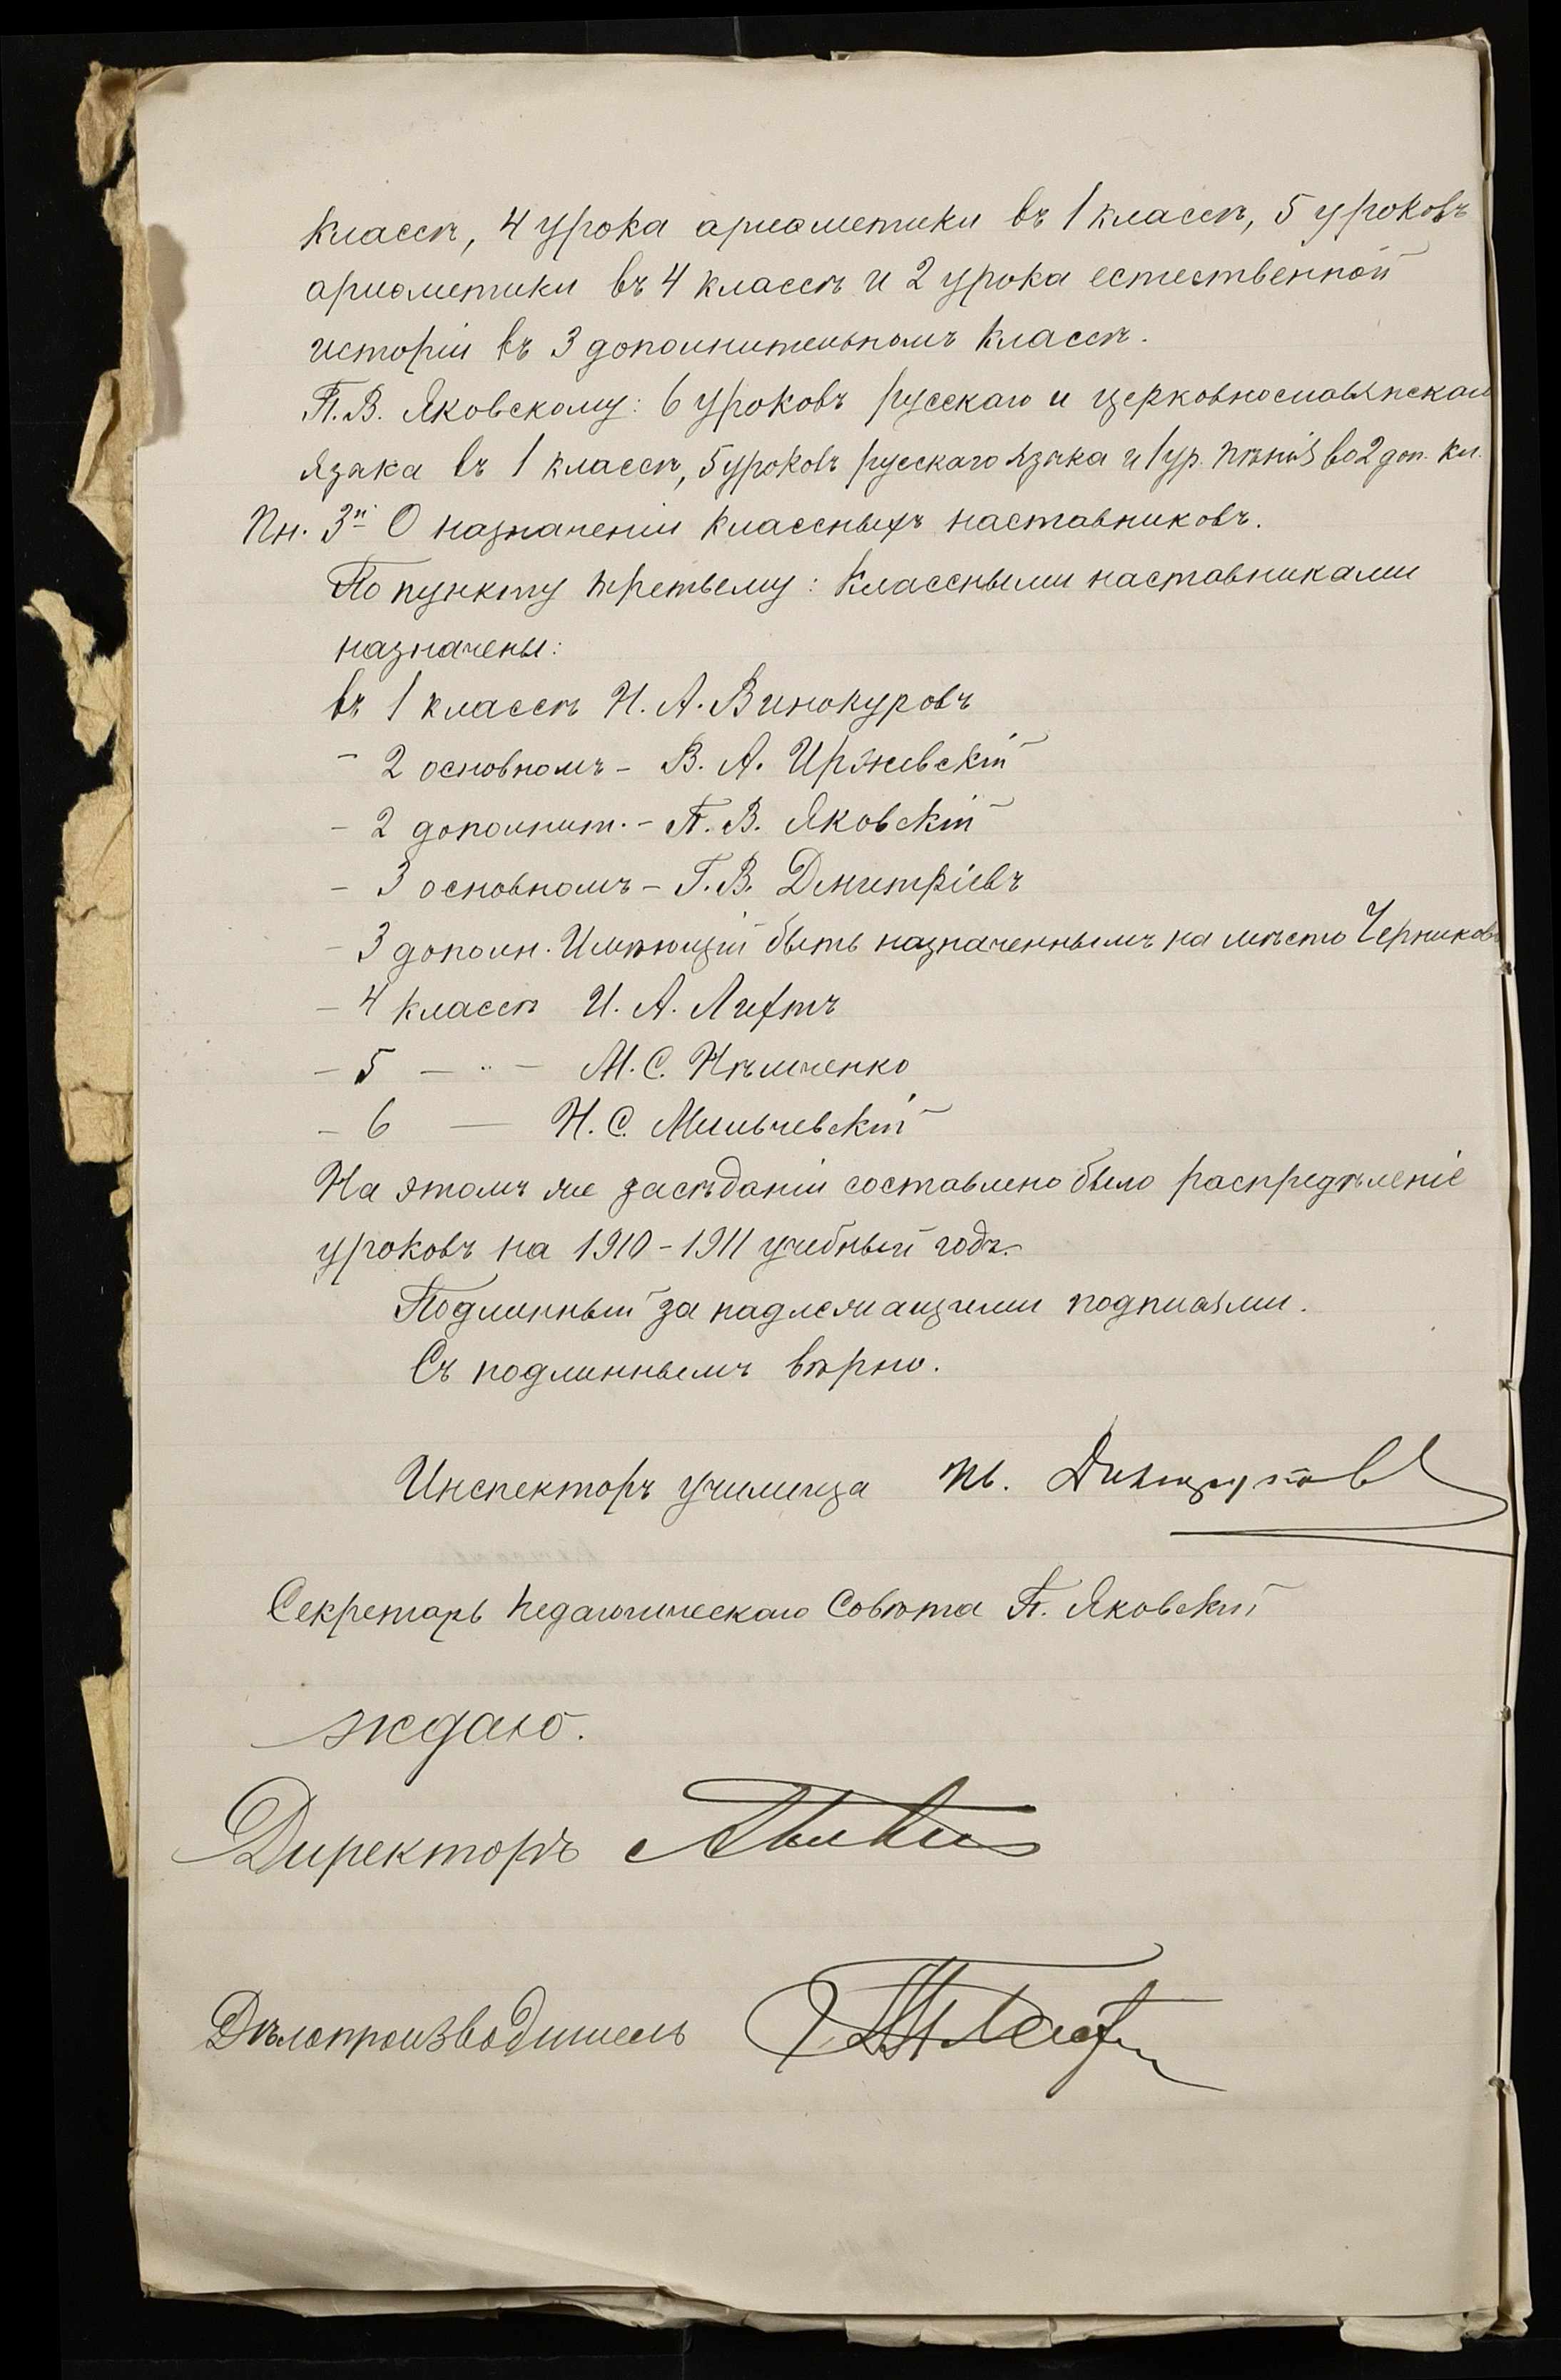 классѣ, 4 урока ариѳметики въ 1 классѣ, 5 уроковъ
ариѳметики въ 4 классѣ и 2 урока естественной
исторіи въ 3 дополнительномъ классѣ.
П. В. Яковскому: 6 уроковъ русскаго и церковнославянскаго
языка въ 1 классѣ, 5 уроковъ русскаго языка и 1 ур. пѣнія во 2 доп. кл.
Пн. 3й О назначеніи классныхъ наставниковъ.
По пункту третьему: Классными наставниками
назначены:
въ 1 классѣ Н. А. Винокуровъ
- 2 основномъ - В. А. Иржевскій
- 2 дополнит. - П. В. Яковскій
- 3 основномъ - Г. В. Дмитріевъ
- 3 дополн. Имѣющій быть назначеннымъ на мѣсто Черникова
- 4 классѣ И. А. Лихтъ
- 5 - " - М. С. Нѣмченко
- 6 — Н. С. Мильчевскій
На этомъ же засѣданіи составлено было распредѣленіе
уроковъ на 1910-1911 учебный годъ.
Подлинный за надлежащими подписями.
Съ подлиннымъ вѣрно.
Инспекторъ училища
Секретарь Педагогическаго Совѣта П. Яковскій
ждаю.
Директоръ
Дѣлопроизводитель